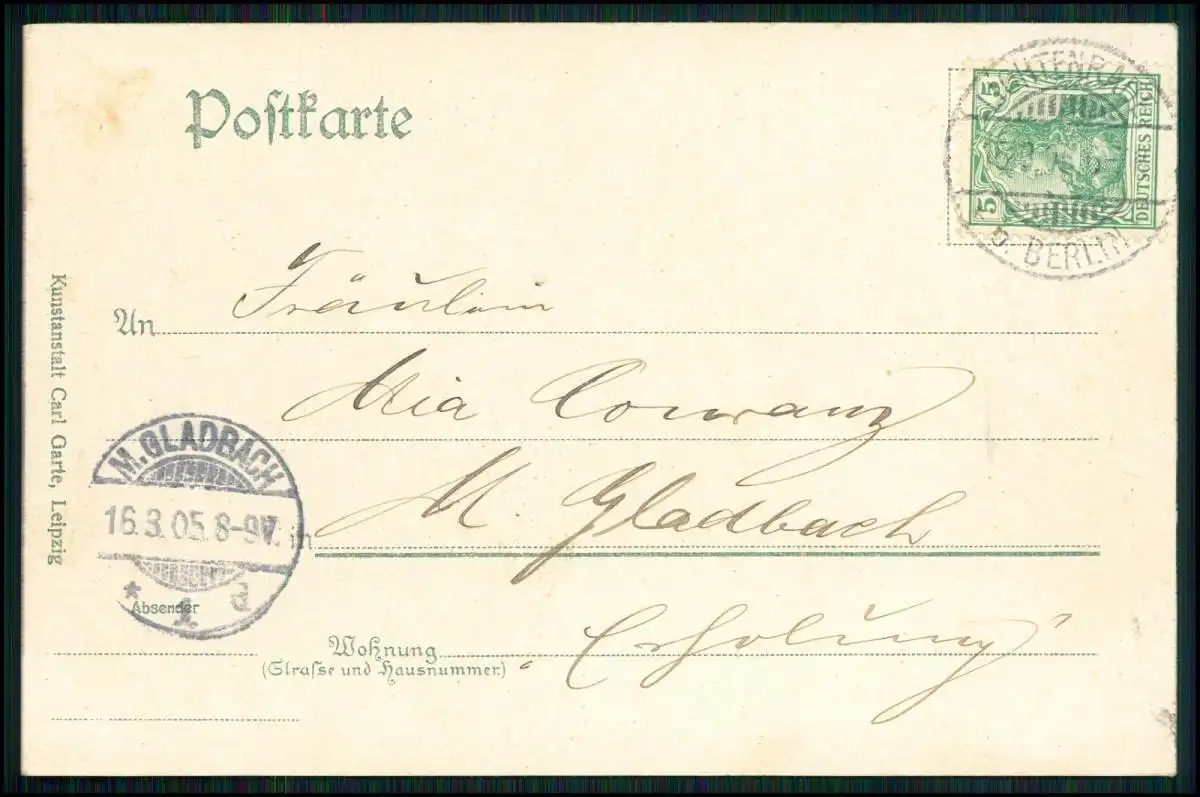 Postkarte
5 5 DEUTSCHES REICH
b. BERLIN
Fräulein
An
Mia Conwanz
M. GLADBACH
M. Gladbach
16.3.05.8-9V.
in
* 1. d
Absender
Wohnung
(Strasse und Hausnummer.)
„Erholung"
Kunstanstalt Carl Garte, Leipzig